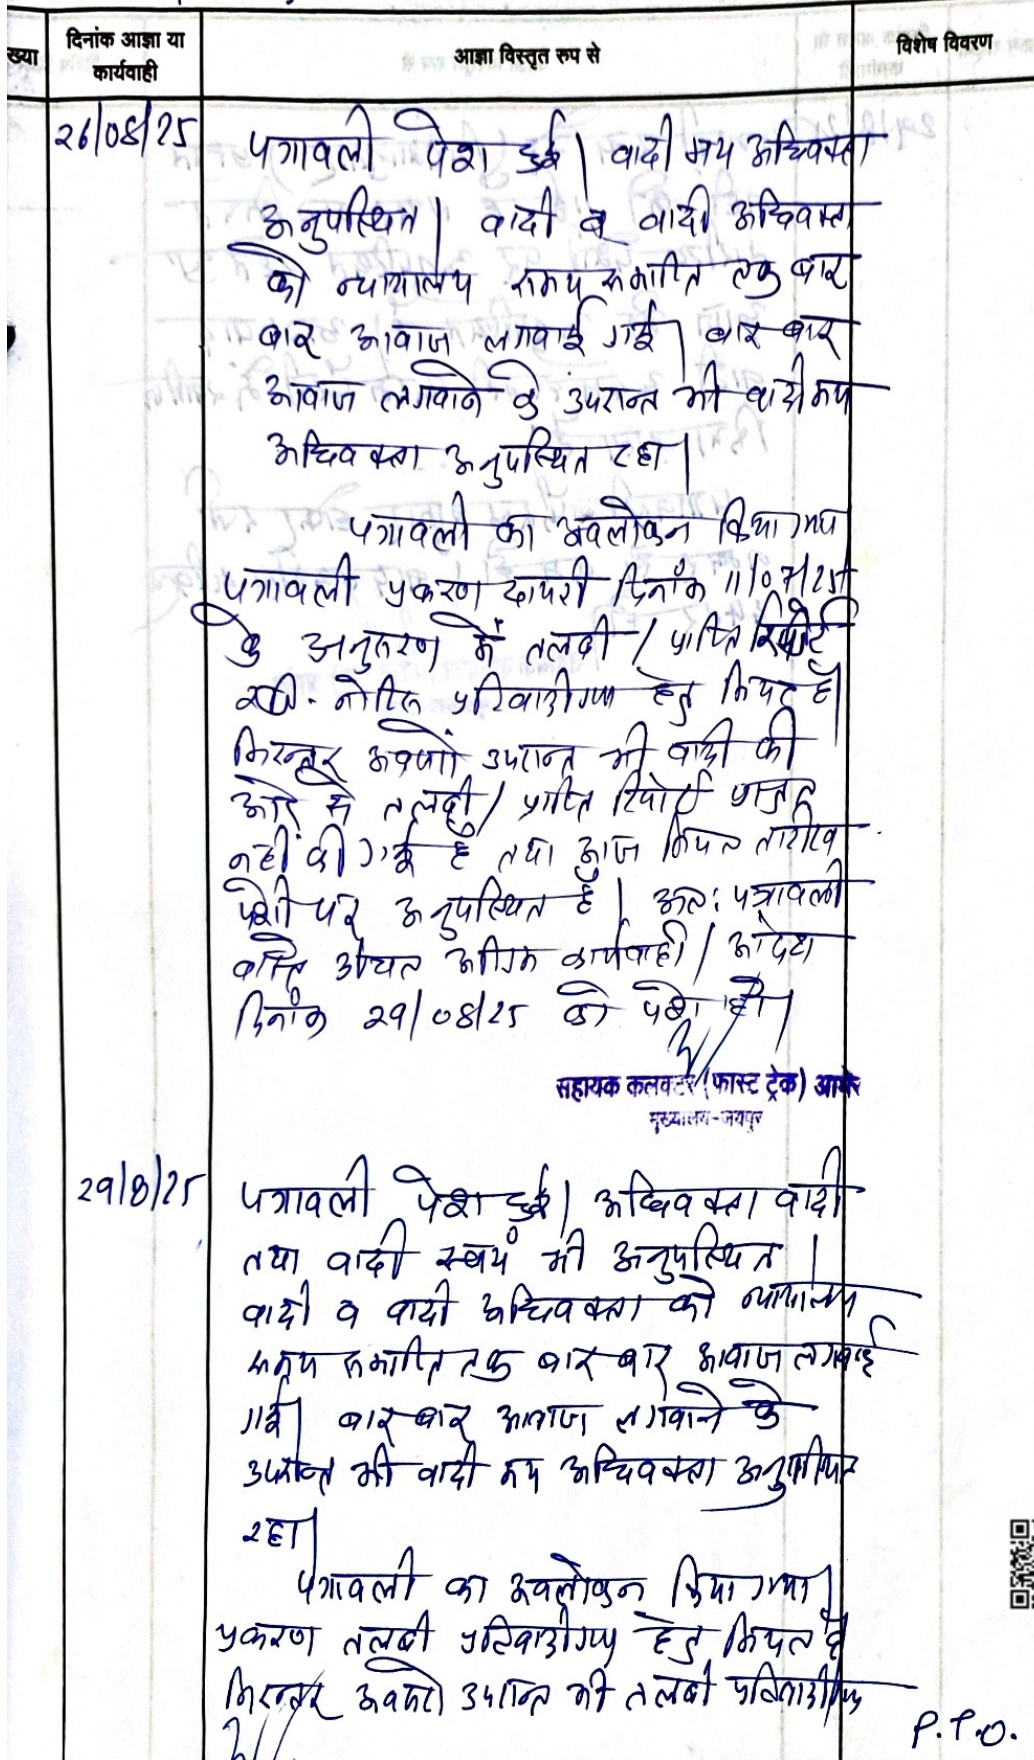 ख्या
दिनांक आज्ञा या
कार्यवाही
आज्ञा विस्तृत रूप से
विशेष विवरण
26/08/25
पत्रावली पेश हुई। वादी मय अधिवक्ता
अनुपस्थित। वादी व वादी अधिवक्ता
को न्यायालय समय समाप्ति तक बार
बार आवाज लगवाई गई। बार बार
आवाज लगवाने के उपरान्त भी वादी मय
अधिवक्ता अनुपस्थित रहा।
पत्रावली का अवलोकन किया गया
पत्रावली प्रकरण दायरी दिनाँक 11/07/25
के अनुसरण में तलबी / प्राप्ति रिपोर्ट
नोटिस प्रतिवादीगण हेतु नियत है।
निरन्तर अवसरों उपरान्त भी वादी की
ओर से तलबी / प्राप्ति रिपोर्ट प्रस्तुत
नहीं की गई है तथा आज नियत तारीख
पेशी पर अनुपस्थित है। अतः पत्रावली
वास्ते उचित अग्रिम कार्यवाही / आदेश
दिनाँक 29/08/25 को पेश हो।
सहायक कलक्टर (फास्ट ट्रेक) आमेर
मुख्यालय-जयपुर
29/8/25
पत्रावली पेश हुई। अधिवक्ता वादी
तथा वादी स्वयं भी अनुपस्थित।
वादी व वादी अधिवक्ता को न्यायालय
समय समाप्ति तक बार बार आवाज लगवाई
गई। बार बार आवाज लगवाने के
उपरान्त भी वादी मय अधिवक्ता अनुपस्थित
रहा।
पत्रावली का अवलोकन किया गया।
प्रकरण तलबी प्रतिवादीगण हेतु नियत है
निरन्तर अवसरों उपरान्त भी तलबी प्रतिवादीगण
P.T.O.